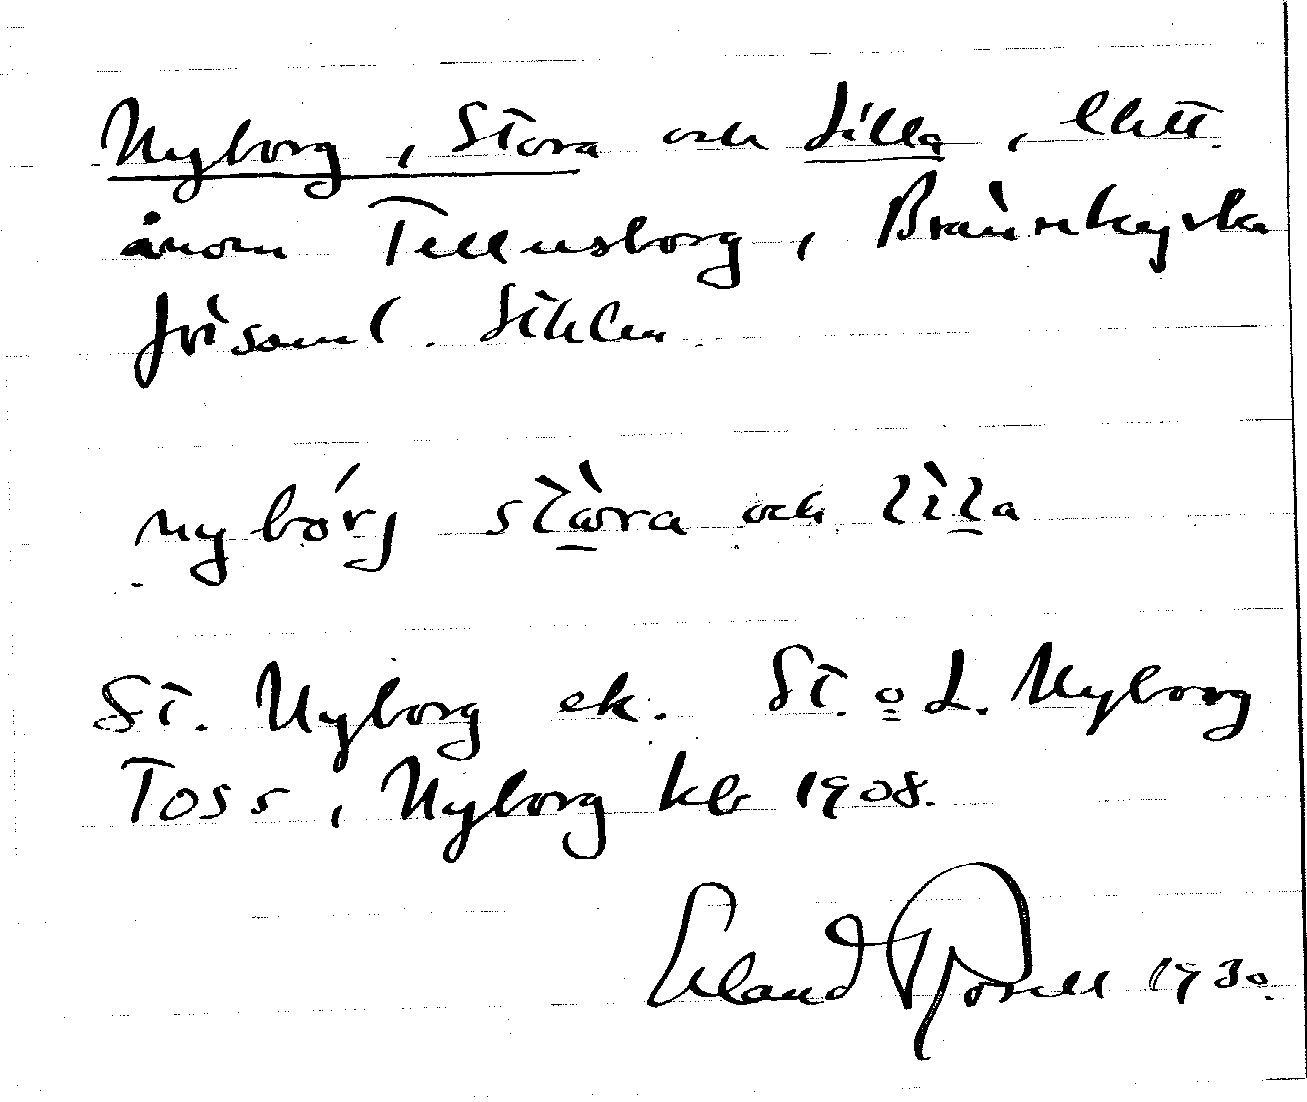 Nyborg, Stora och Lilla, litet
inom Tellusborg, Brännkyrka
församl. Sthlm.
nybórj stòra och lìla
St. Nyborg ek. St. o L. Nyborg
Toss, Nyborg kb 1908.
Erland Rosell 1930.